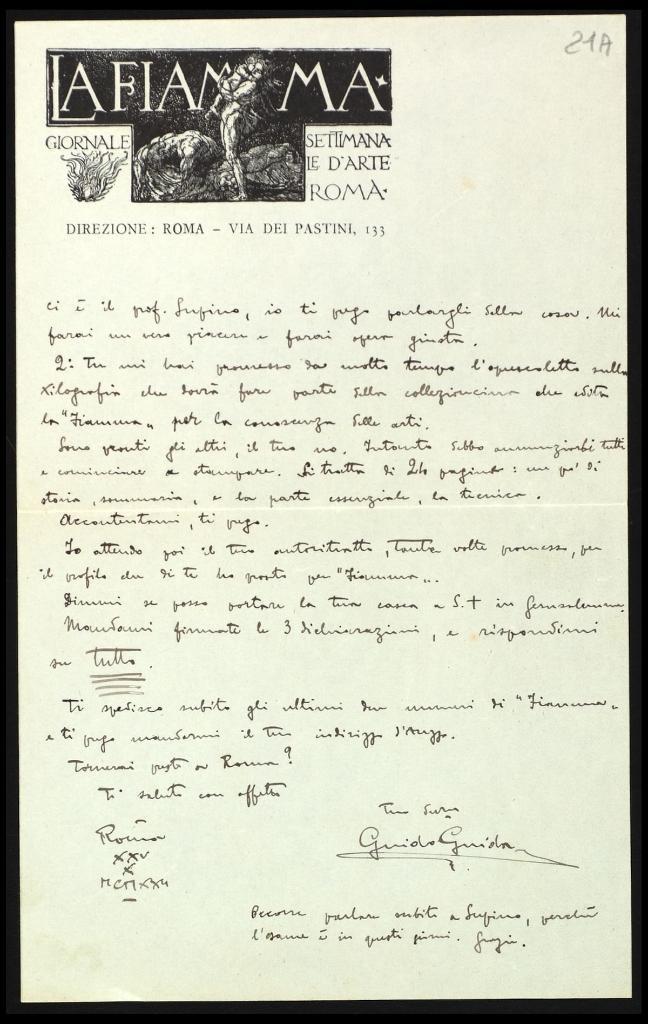 21A
LA FIAMMA
GIORNALE SETTIMANA
LE D'ARTE
ROMA
DIREZIONE: ROMA – VIA DEI PASTINI, 133
ci è il prof. Supino, io ti prego parlargli della cosa. Mi
farai un vero piacere e farai opera giusta.
2: Tu mi hai promesso da molto tempo l'opuscoletto sulla
xilografia che dovrà fare parte della collezioncina che edita
la "Fiamma" per la conoscenza delle arti.
Sono pronti gli altri, il tuo no. Intanto debbo annunziarli tutti
e cominciare a stampare. Si tratta di 24 pagine: un po' di
storia, sommaria, e la parte essenziale, la tecnica.
Accontentami, ti prego.
Io attendo poi il tuo autoritratto, tante volte promesso, per
il profilo che di te ho pronto per "Fiamma".
Dimmi se posso portare la tua cassa a S. + in Gerusalemme.
Mandami firmate le 3 dichiarazioni, e rispondimi
su tutto.
Ti spedisco subito gli ultimi due numeri di "Fiamma"
e ti prego mandarmi il tuo indirizzo d'Arezzo.
Tornerai presto a Roma?
Ti saluto con affetto
Tuo
Guido Guida
Roma
XXV
X
MCMXXII
Occorre parlare subito a Supino, perchè
l'esame è in questi giorni. Grazie.